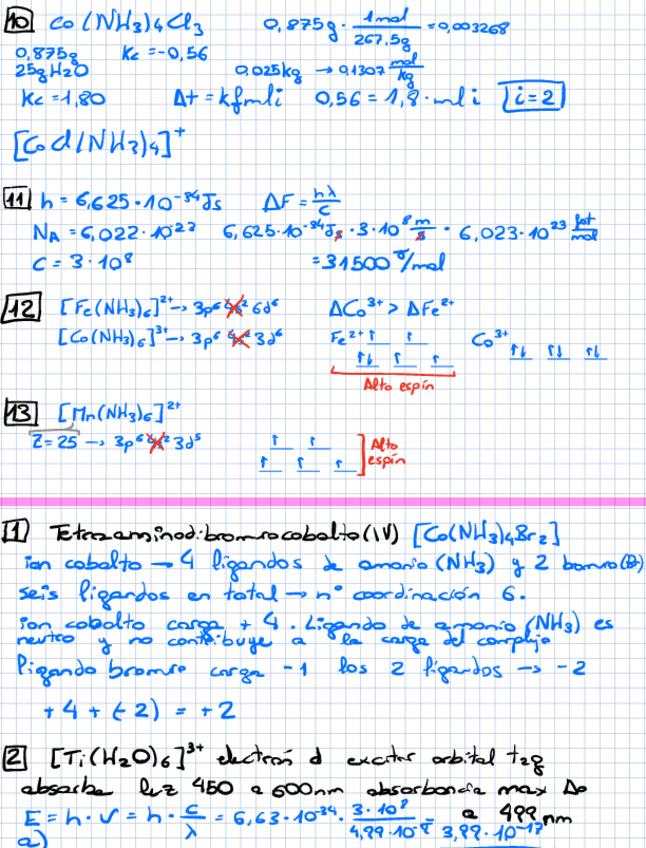 10 Co(NH3)4Cl3 0,875g · 1mol / 267,5g = 0,003268
0,875g Kc = -0,56
25g H2O 0,025kg → 0,1307 mol/kg
Kc = 1,80 Δt = kfmli 0,56 = 1,8 · mli i = 2
[CoCl(NH3)4]+
11 h = 6,625·10^-34 Js ΔF = hλ/c
NA = 6,022·10^23 6,625·10^-34 Js · 3·10^8 m/s · 6,023·10^23 fot/mol
C = 3·10^8 = 31500 J/mol
12 [Fe(NH3)6]2+ → 3p6 4s2 6d6 ΔCo3+ > ΔFe2+
[Co(NH3)6]3+ → 3p6 4s2 3d6 Fe2+ ↑ ↑ Co3+ ↑↓ ↑↓ ↑↓
↑↓ ↑ ↑
Alto espín
13 [Mn(NH3)6]2+
Z=25 → 3p6 4s2 3d5 ↑ ↑ Alto
↑ ↑ ↑ espín
1 Tetraaminodibromrocobalto(IV) [Co(NH3)4Br2]
ion cobalto → 4 ligandos de amonio (NH3) y 2 bomro(Br)
seis ligandos en total → nº coordinación 6.
ion cobalto carga + 4. Ligando de amonio (NH3) es
neutro y no contribuye a la carga del complejo
ligando bromro carga -1 los 2 ligandos → -2
+4 + (-2) = +2
2 [Ti(H2O)6]3+ electron d excitar orbital t2g
absorbe luz 450 a 600nm absorbancia max Δo
E = h·ν = h · c/λ = 6,63·10^-34 · 3·10^8 / 4,99·10^-7 a 499 nm
a) 3,99·10^-17